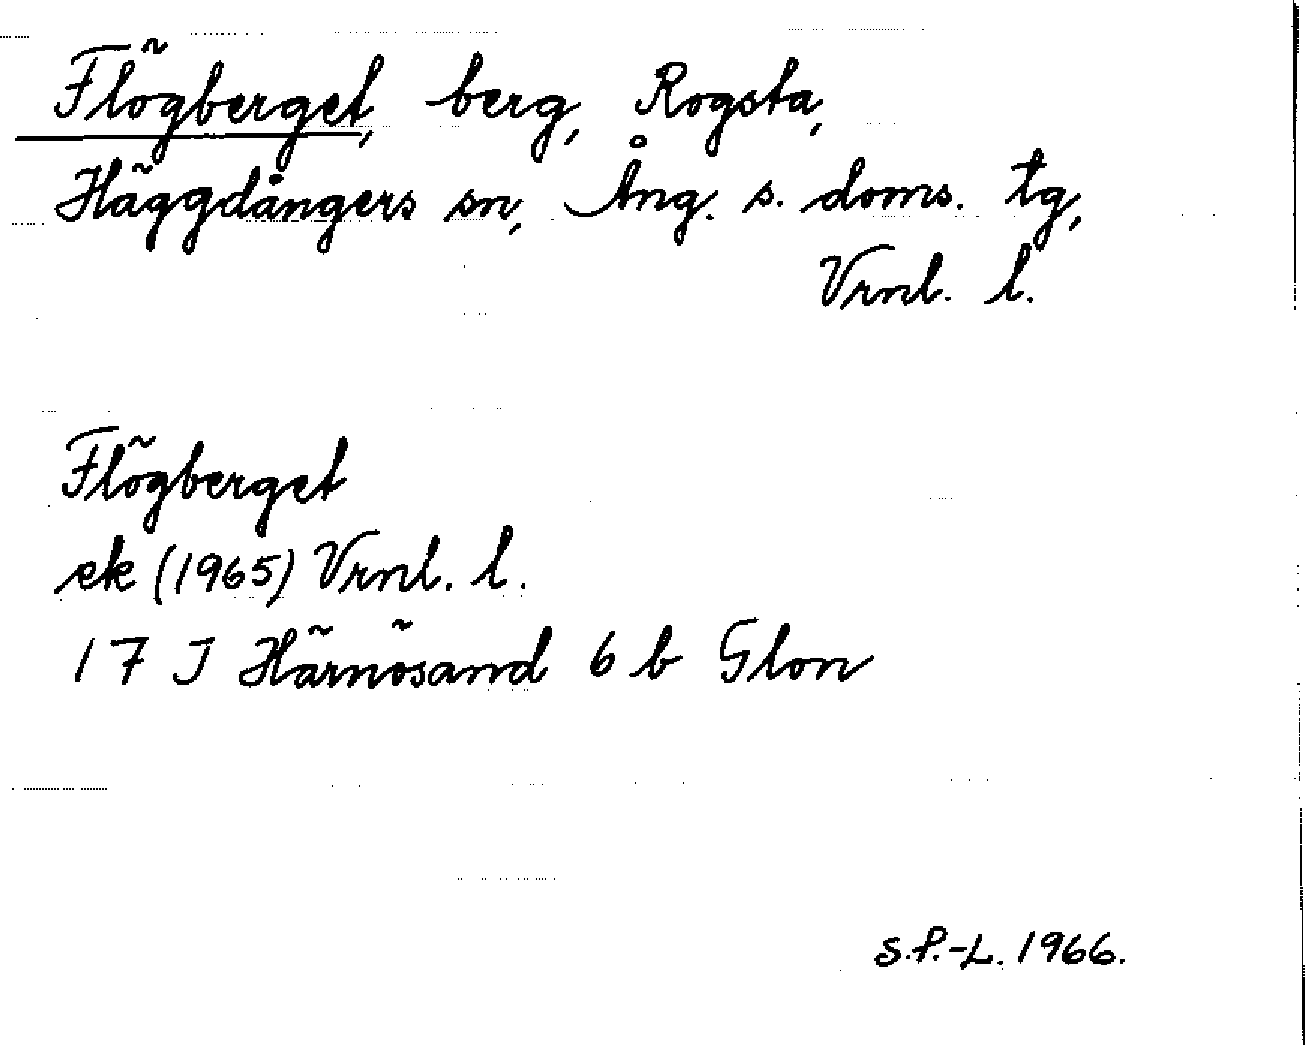 Flögberget, berg, Rogsta,
Häggdångers sn, Ång. s. doms. tg,
Vrnl. l.
Flögberget
ek (1965) Vrnl. l.
17 J Härnösand 6 b Glon
S.P.-L. 1966.